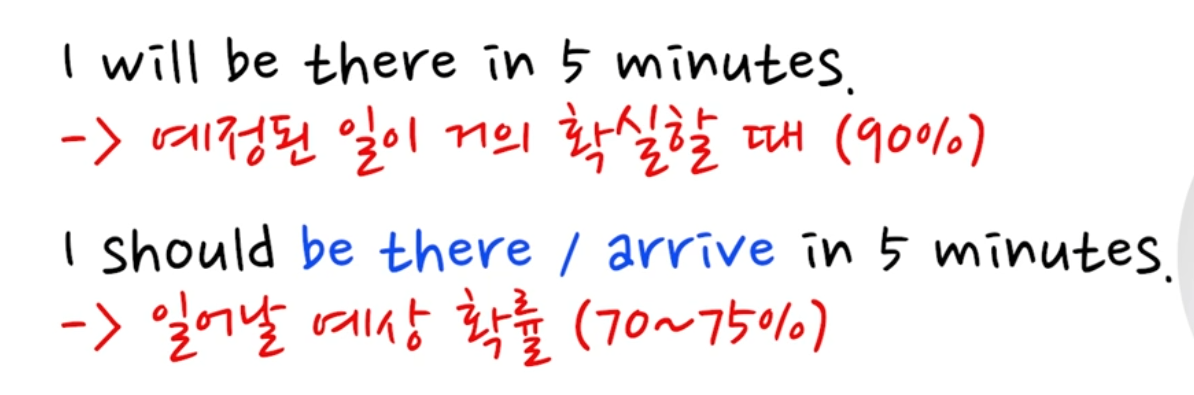 I will be there in 5 minutes.
-> 예정된 일이 거의 확실할 때 (90%)
I should be there / arrive in 5 minutes.
-> 일어날 예상 확률 (70~75%)